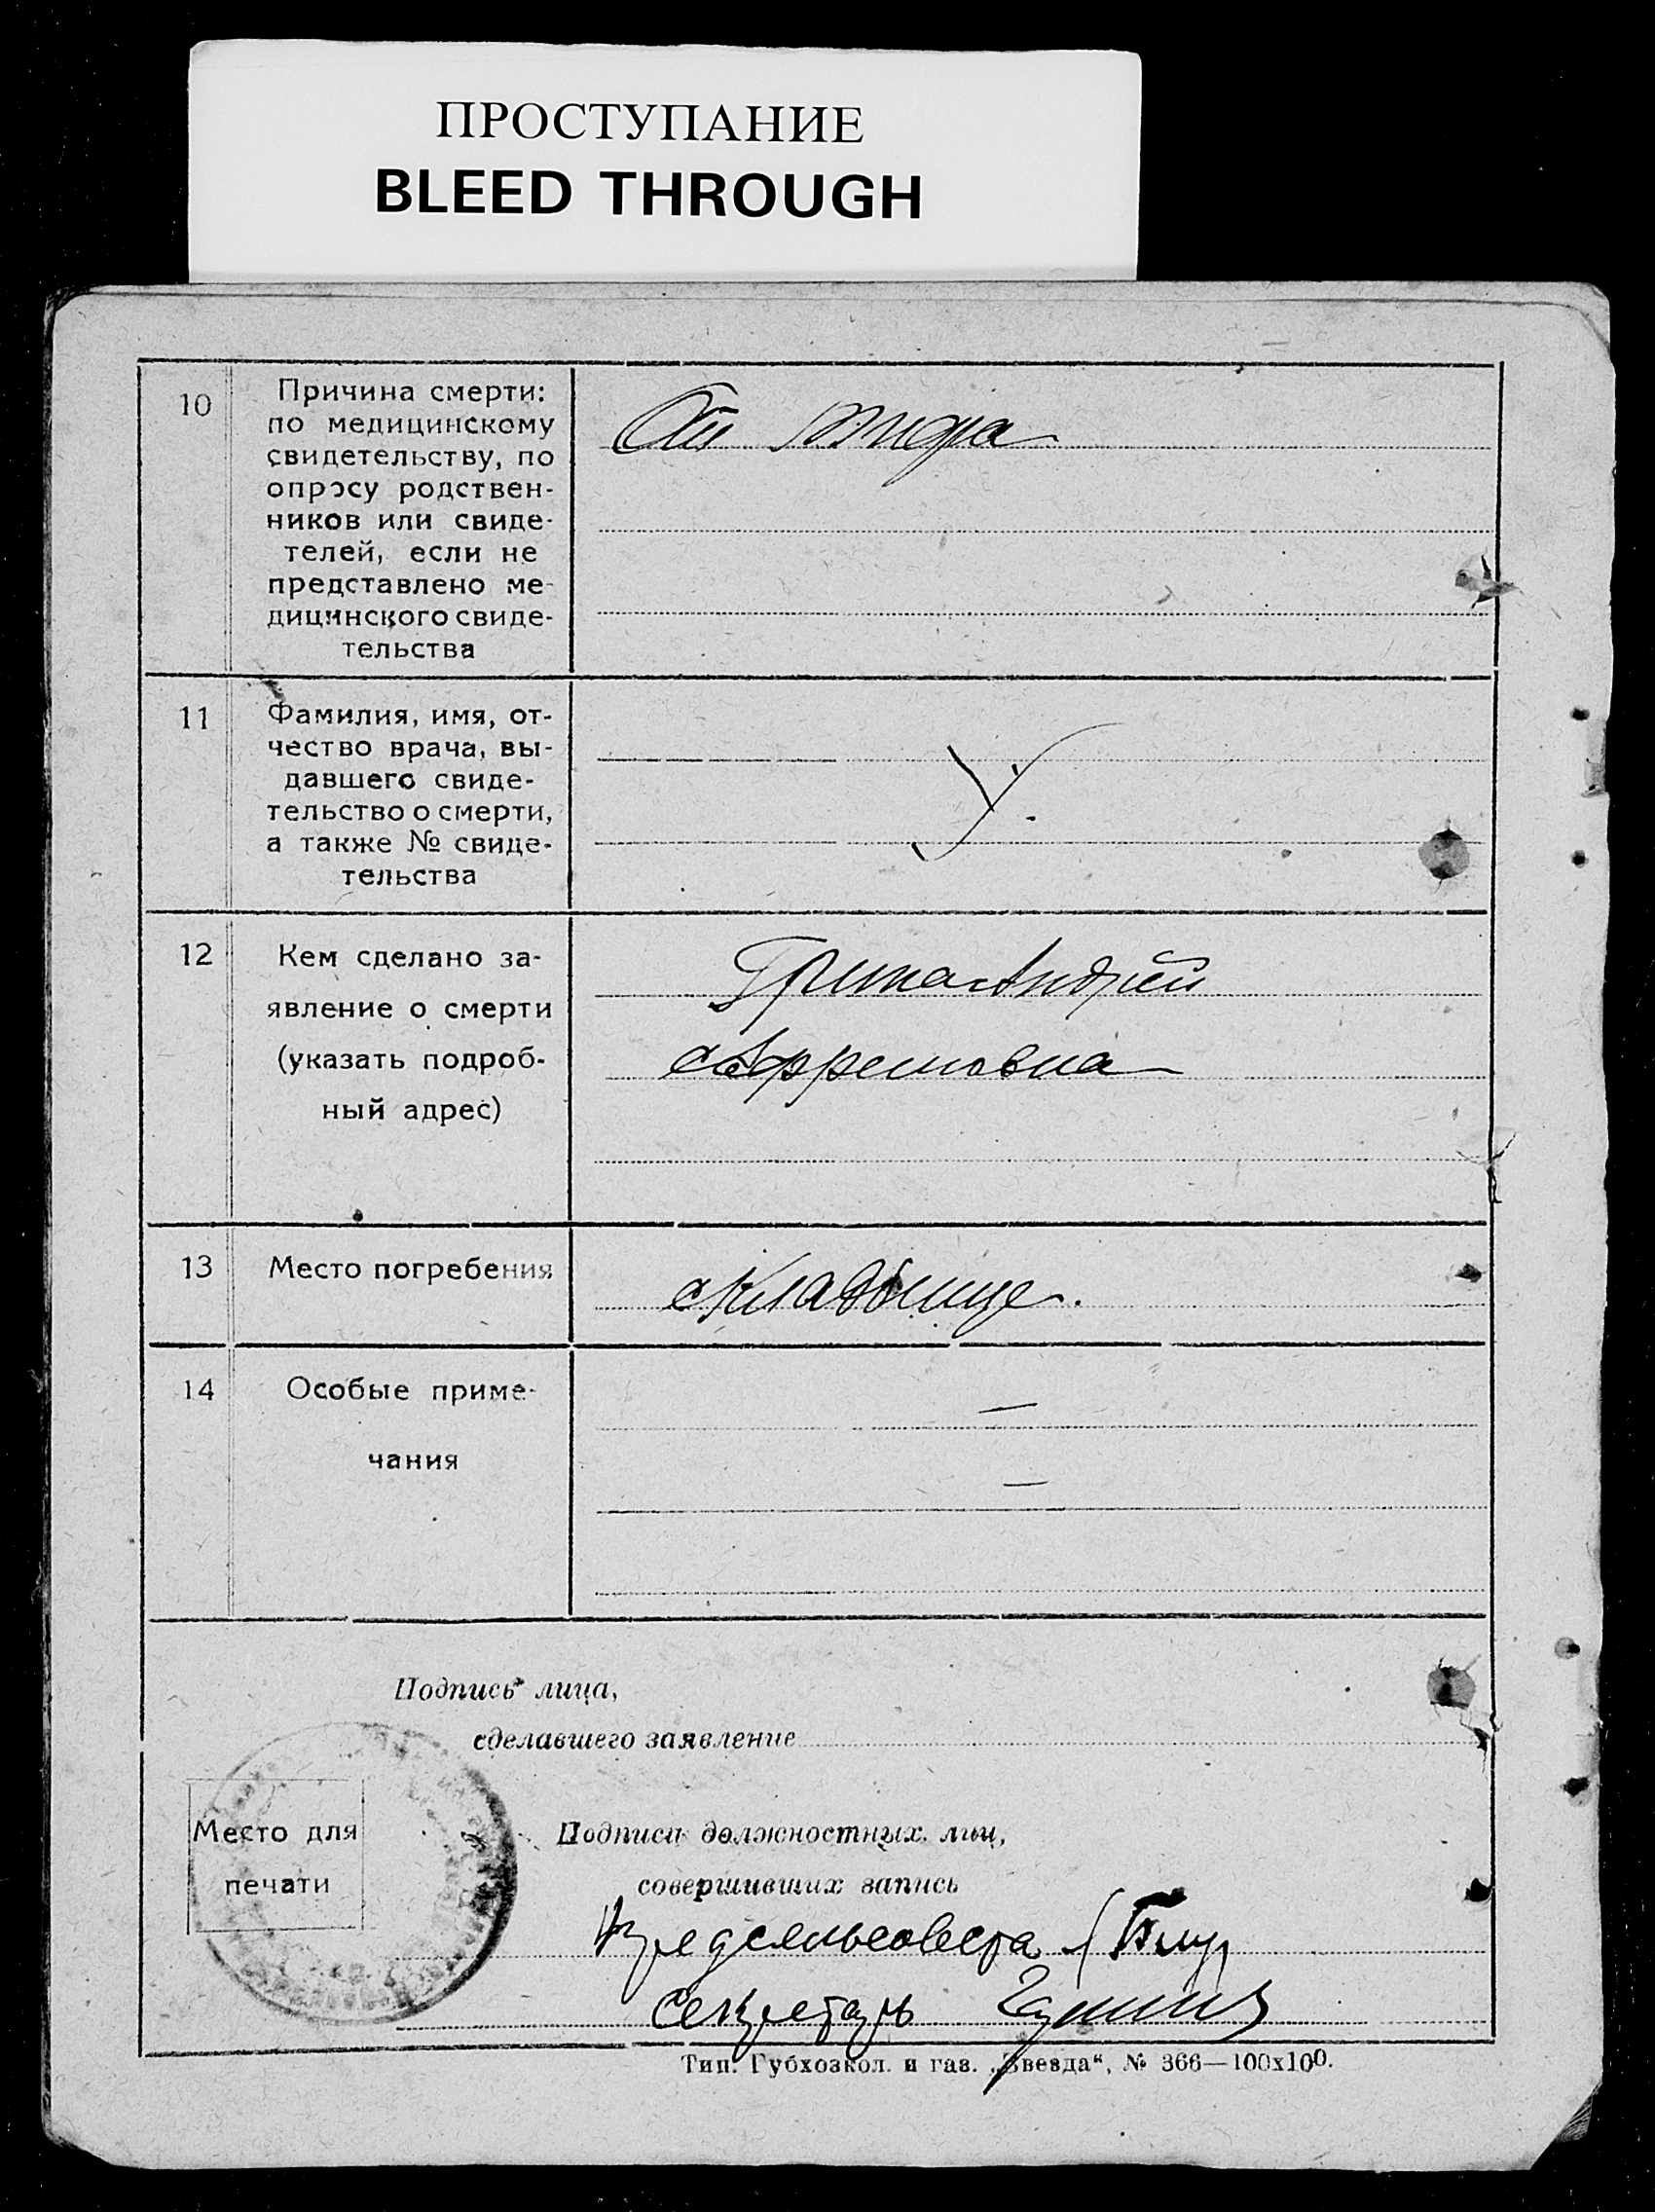 ПРОСТУПАНИЕ
BLEED THROUGH
10
Причина смерти:
по медицинскому
свидетельству, по
опросу родствен-
ников или свиде-
телей, если не
представлено ме-
дицинского свиде-
тельства
От
11
Фамилия, имя, от-
чество врача, вы-
давшего свиде-
тельство о смерти,
а также № свиде-
тельства
У.
12
Кем сделано за-
явление о смерти
(указать подроб-
ный адрес)
Андрей
13
Место погребения
Кладбище.
14
Особые приме-
чания
—
—
Подпись лица,
сделавшего заявление
Место для
печати
Подписи должностных лиц,
совершивших запись
Предсельсовета
Секретарь
Тип. Губхозкол. и газ. „Звезда“, № 366—100х100.